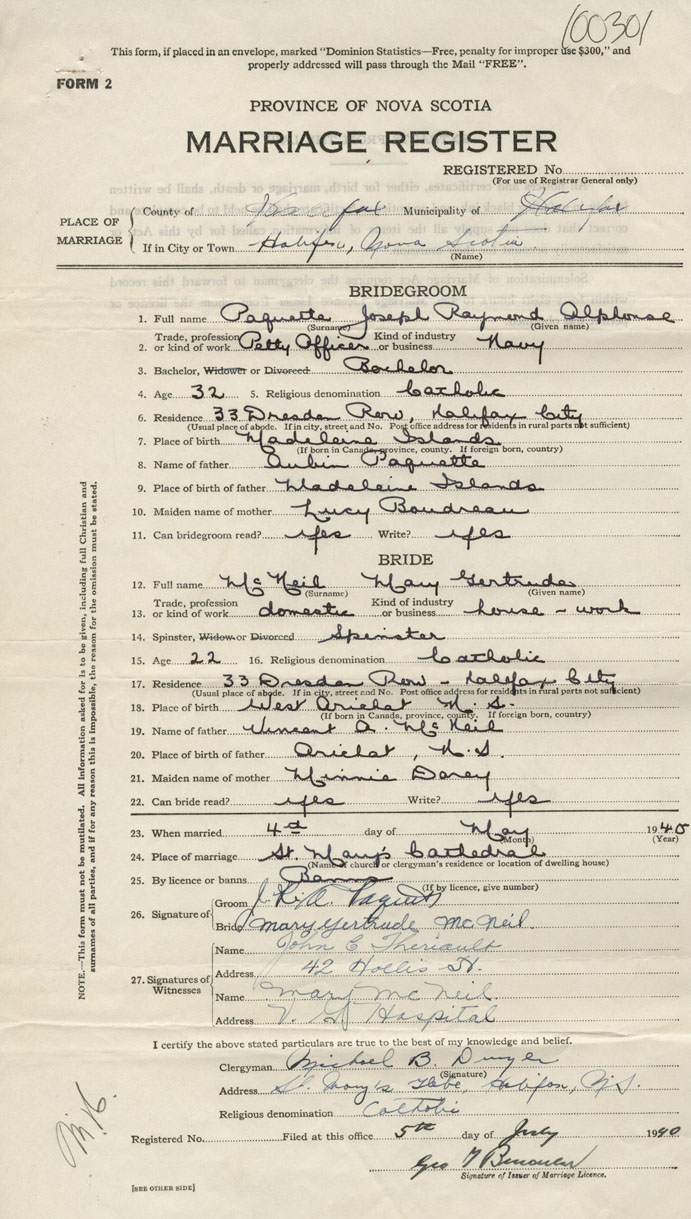 100301
This form, if placed in an envelope, marked "Dominion Statistics—Free, penalty for improper use $300," and
properly addressed will pass through the Mail "FREE".
FORM 2
PROVINCE OF NOVA SCOTIA
MARRIAGE REGISTER
REGISTERED No.
(For use of Registrar General only)
PLACE OF MARRIAGE
County of Halifax Municipality of Halifax
If in City or Town Halifax, Nova Scotia
(Name)
BRIDEGROOM
1. Full name Paquette Joseph Raymond Alphonse
(Surname) (Given name)
2. Trade, profession or kind of work Petty Officer Kind of industry or business Navy
3. Bachelor, Widower or Divorced Bachelor
4. Age 32 5. Religious denomination Catholic
6. Residence 33 Dresden Row, Halifax City
(Usual place of abode. If in city, street and No. Post office address for residents in rural parts not sufficient)
7. Place of birth Madeleine Islands
(If born in Canada, province, county. If foreign born, country)
8. Name of father Aubin Paquette
9. Place of birth of father Madeleine Islands
10. Maiden name of mother Lucy Boudreau
11. Can bridegroom read? yes Write? yes
BRIDE
12. Full name McNeil Mary Gertrude
(Surname) (Given name)
13. Trade, profession or kind of work domestic Kind of industry or business house-work
14. Spinster, Widow or Divorced Spinster
15. Age 22 16. Religious denomination Catholic
17. Residence 33 Dresden Row - Halifax City
(Usual place of abode. If in city, street and No. Post office address for residents in rural parts not sufficient)
18. Place of birth West Arichat N.S.
(If born in Canada, province, county. If foreign born, country)
19. Name of father Vincent A. McNeil
20. Place of birth of father Arichat, N.S.
21. Maiden name of mother Minnie Darey
22. Can bride read? yes Write? yes
23. When married 4th day of May 1940
(Month) (Year)
24. Place of marriage St. Mary's Cathedral
(Name of church or clergyman's residence or location of dwelling house)
25. By licence or banns Banns
(If by licence, give number)
26. Signature of
Groom J. R. A. Paquette
Bride Mary Gertrude McNeil.
27. Signatures of Witnesses
Name John E Theriault
Address 42 Hollis St.
Name Mary McNeil
Address V. G. Hospital
I certify the above stated particulars are true to the best of my knowledge and belief.
Clergyman Michael B. Dwyer
(Signature)
Address St. Mary's Glebe, Halifax, N.S.
Religious denomination Catholic
Registered No. Filed at this office 5th day of July 1940
Geo
Signature of Issuer of Marriage Licence.
[SEE OTHER SIDE]
NOTE.—This form must not be mutilated. All information asked for is to be given, including full Christian and
surnames of all parties, and if for any reason this is impossible, the reason for the omission must be stated.